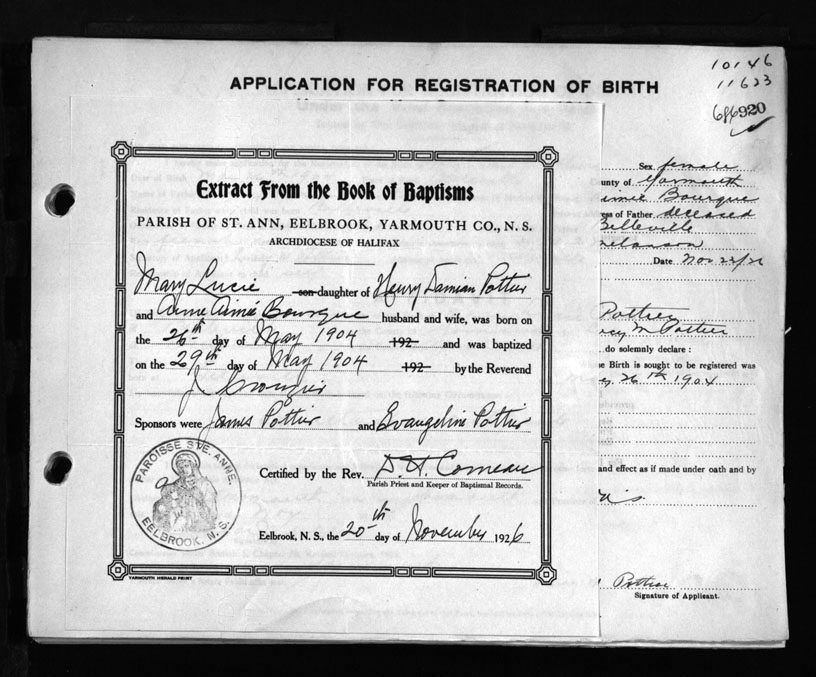 10146
11623
686920
APPLICATION FOR REGISTRATION OF BIRTH
Extract From the Book of Baptisms
PARISH OF ST. ANN, EELBROOK, YARMOUTH CO., N. S.
ARCHDIOCESE OF HALIFAX
Mary Lucie son daughter of Henry Damian Pottier
and Anne Aimé Bourque husband and wife, was born on
the 26th day of May 1904 192 and was baptized
on the 29th day of May 1904 192 by the Reverend
J Crouzier
Sponsors were James Pottier and Evangeline Pottier
Certified by the Rev. D. H. Comeau
Parish Priest and Keeper of Baptismal Records.
Eelbrook, N. S., the 20th day of November 1926
PAROISSE STE. ANNE.
EELBROOK, N. S.
YARMOUTH HERALD PRINT
Sex female
unty of Yarmouth
Bourque
ess of Father deceased
Belleville
Melanson
Date Nov 22/26
Pottier
M Pottier
do solemnly declare :
e Birth is sought to be registered was
26th 1904
and effect as if made under oath and by
Pottier
Signature of Applicant.